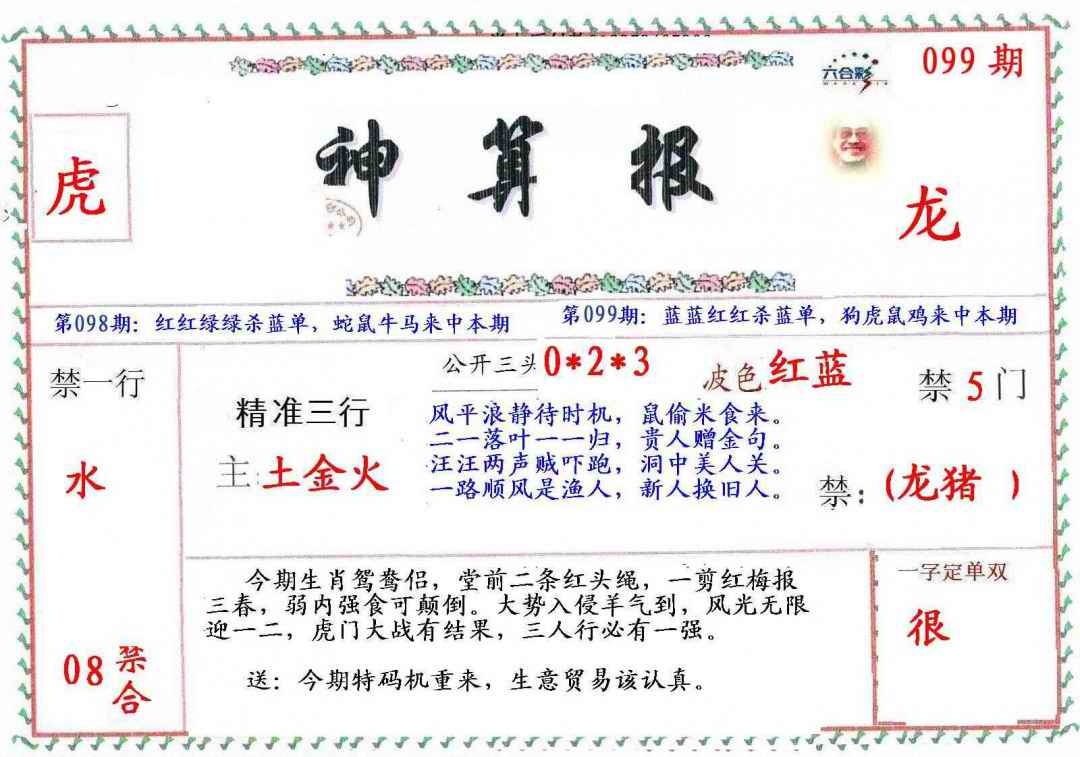 六合彩
099 期
虎
神算报
龙
第098期：红红绿绿杀蓝单，蛇鼠牛马来中本期
第099期：蓝蓝红红杀蓝单，狗虎鼠鸡来中本期
禁一行
水
08 禁合
精准三行
主:土金火
公开三头0*2*3
波色红蓝
禁5门
风平浪静待时机，鼠偷米食来。
二一落叶一一归，贵人赠金句。
汪汪两声贼吓跑，洞中美人关。
一路顺风是渔人，新人换旧人。
禁：(龙猪 )
今期生肖鸳鸯侣，堂前二条红头绳，一剪红梅报
三春，弱内强食可颠倒。大势入侵羊气到，风光无限
迎一二，虎门大战有结果，三人行必有一强。
送：今期特码机重来，生意贸易该认真。
一字定单双
很